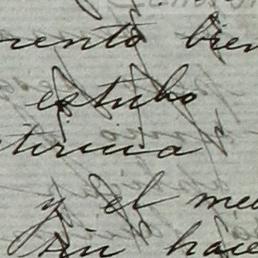 rento bien
estubo
terina
y el me
sin hace